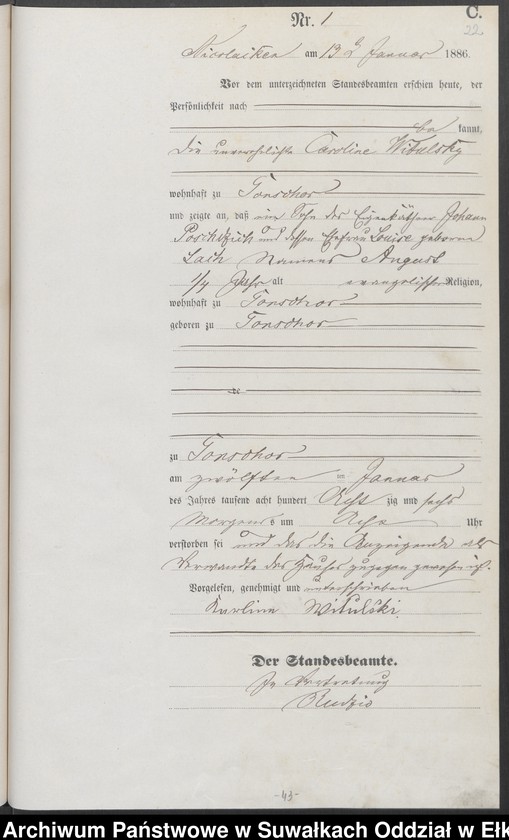 C.
22.
Nr. 1
Nicolaiken am 13 ten Januar 1886.
Vor dem unterzeichneten Standesbeamten erschien heute, der
Persönlichkeit nach
be kannt,
die unverehelichte Caroline Witulsky
wohnhaft zu Tonschor
und zeigte an, daß ein Sohn des Eigenkäthner Johann
und dessen Ehefrau Louise geborne
Namens August
1/4 Jahr alt evangelischer Religion,
wohnhaft zu Tonschor
geboren zu Tonschor
zu Tonschor
am zwölften im Januar
des Jahres tausend acht hundert Acht zig und sechs
Morgens um Acht Uhr
verstorben sei und daß die Anzeigende als
Verwandte des Hauses zugegen gewesen ist.
Vorgelesen, genehmigt und unterschrieben
Karline Witulski.
Der Standesbeamte.
In Vertretung
-43-
Archiwum Państwowe w Suwałkach Oddział w Ełk